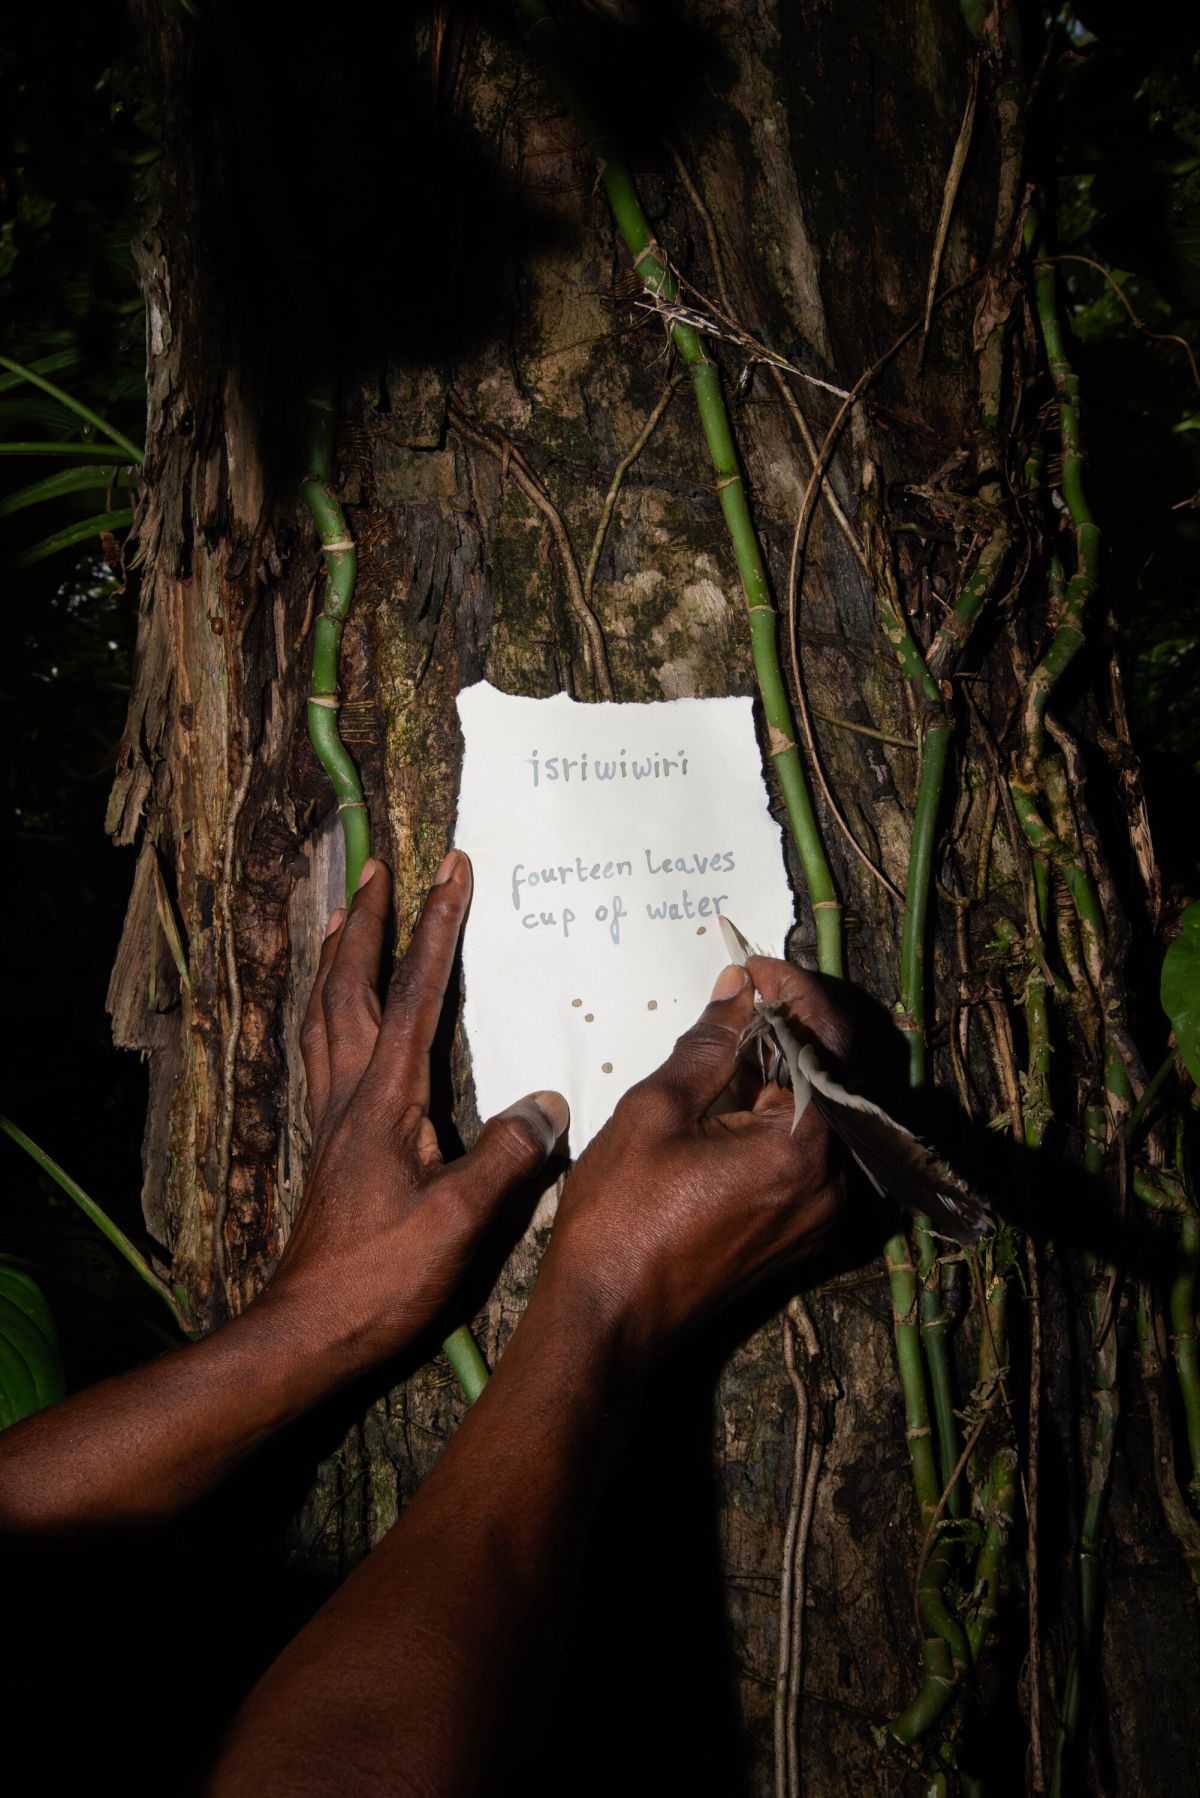 isriwiwiri
fourteen leaves
cup of water